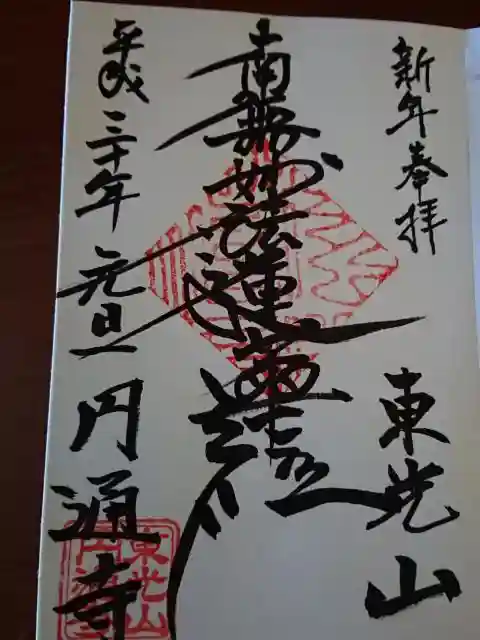 新年奉拝
東光山
南無妙法蓮華経
平成三十年元旦
円通寺
東光山
円通寺